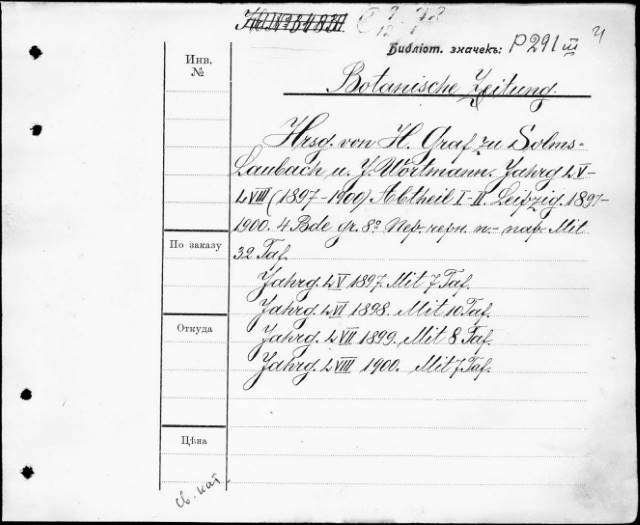 Библіот. значекъ: P291 III
Инв.
№
Botanische Zeitung.
Hrsg. von H. Graf zu Solms-
Laubach u. J. Wortmann. Jahrg LV-
LVIII (1897-1900) Abtheil I-II. Leipzig. 1897-
1900. 4 Bde gr. 8º Пер. черн. п.- пар. Mit
32 Taf.
По заказу
Jahrg. LV 1897. Mit 7 Taf.
Jahrg. LVI 1898. Mit 10 Taf.
Откуда
Jahrg. LVII 1899. Mit 8 Taf.
Jahrg. LVIII 1900. Mit 7 Taf.
Цѣна
св. кат